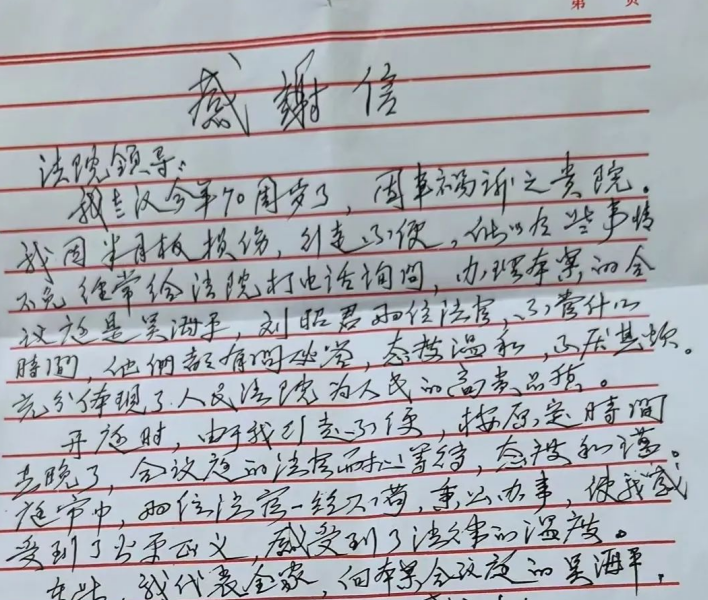 第 页
感謝信
法院領导:
我老汉今年70周岁了,因事初诉之贵院。
我因半月板损伤,引走不便,所以有些事情
不免經常给法院打电话询问,办理本案的合
议庭是吴海平,刘昭君两位法官,不管什么
時間,他們都有問必答,态度温和,不厌其烦。
充分体现了人民法院为人民的高贵品质。
开庭时,由于我引走不便,按原定時間
去晚了,合议庭的法官耐心等待,态度和谨。
庭審中,两位法官一丝不苟,秉公办事,使我感
受到了公平正义,感受到了法律的温度。
在此,我代表全家,向本案合议庭的吴海平,